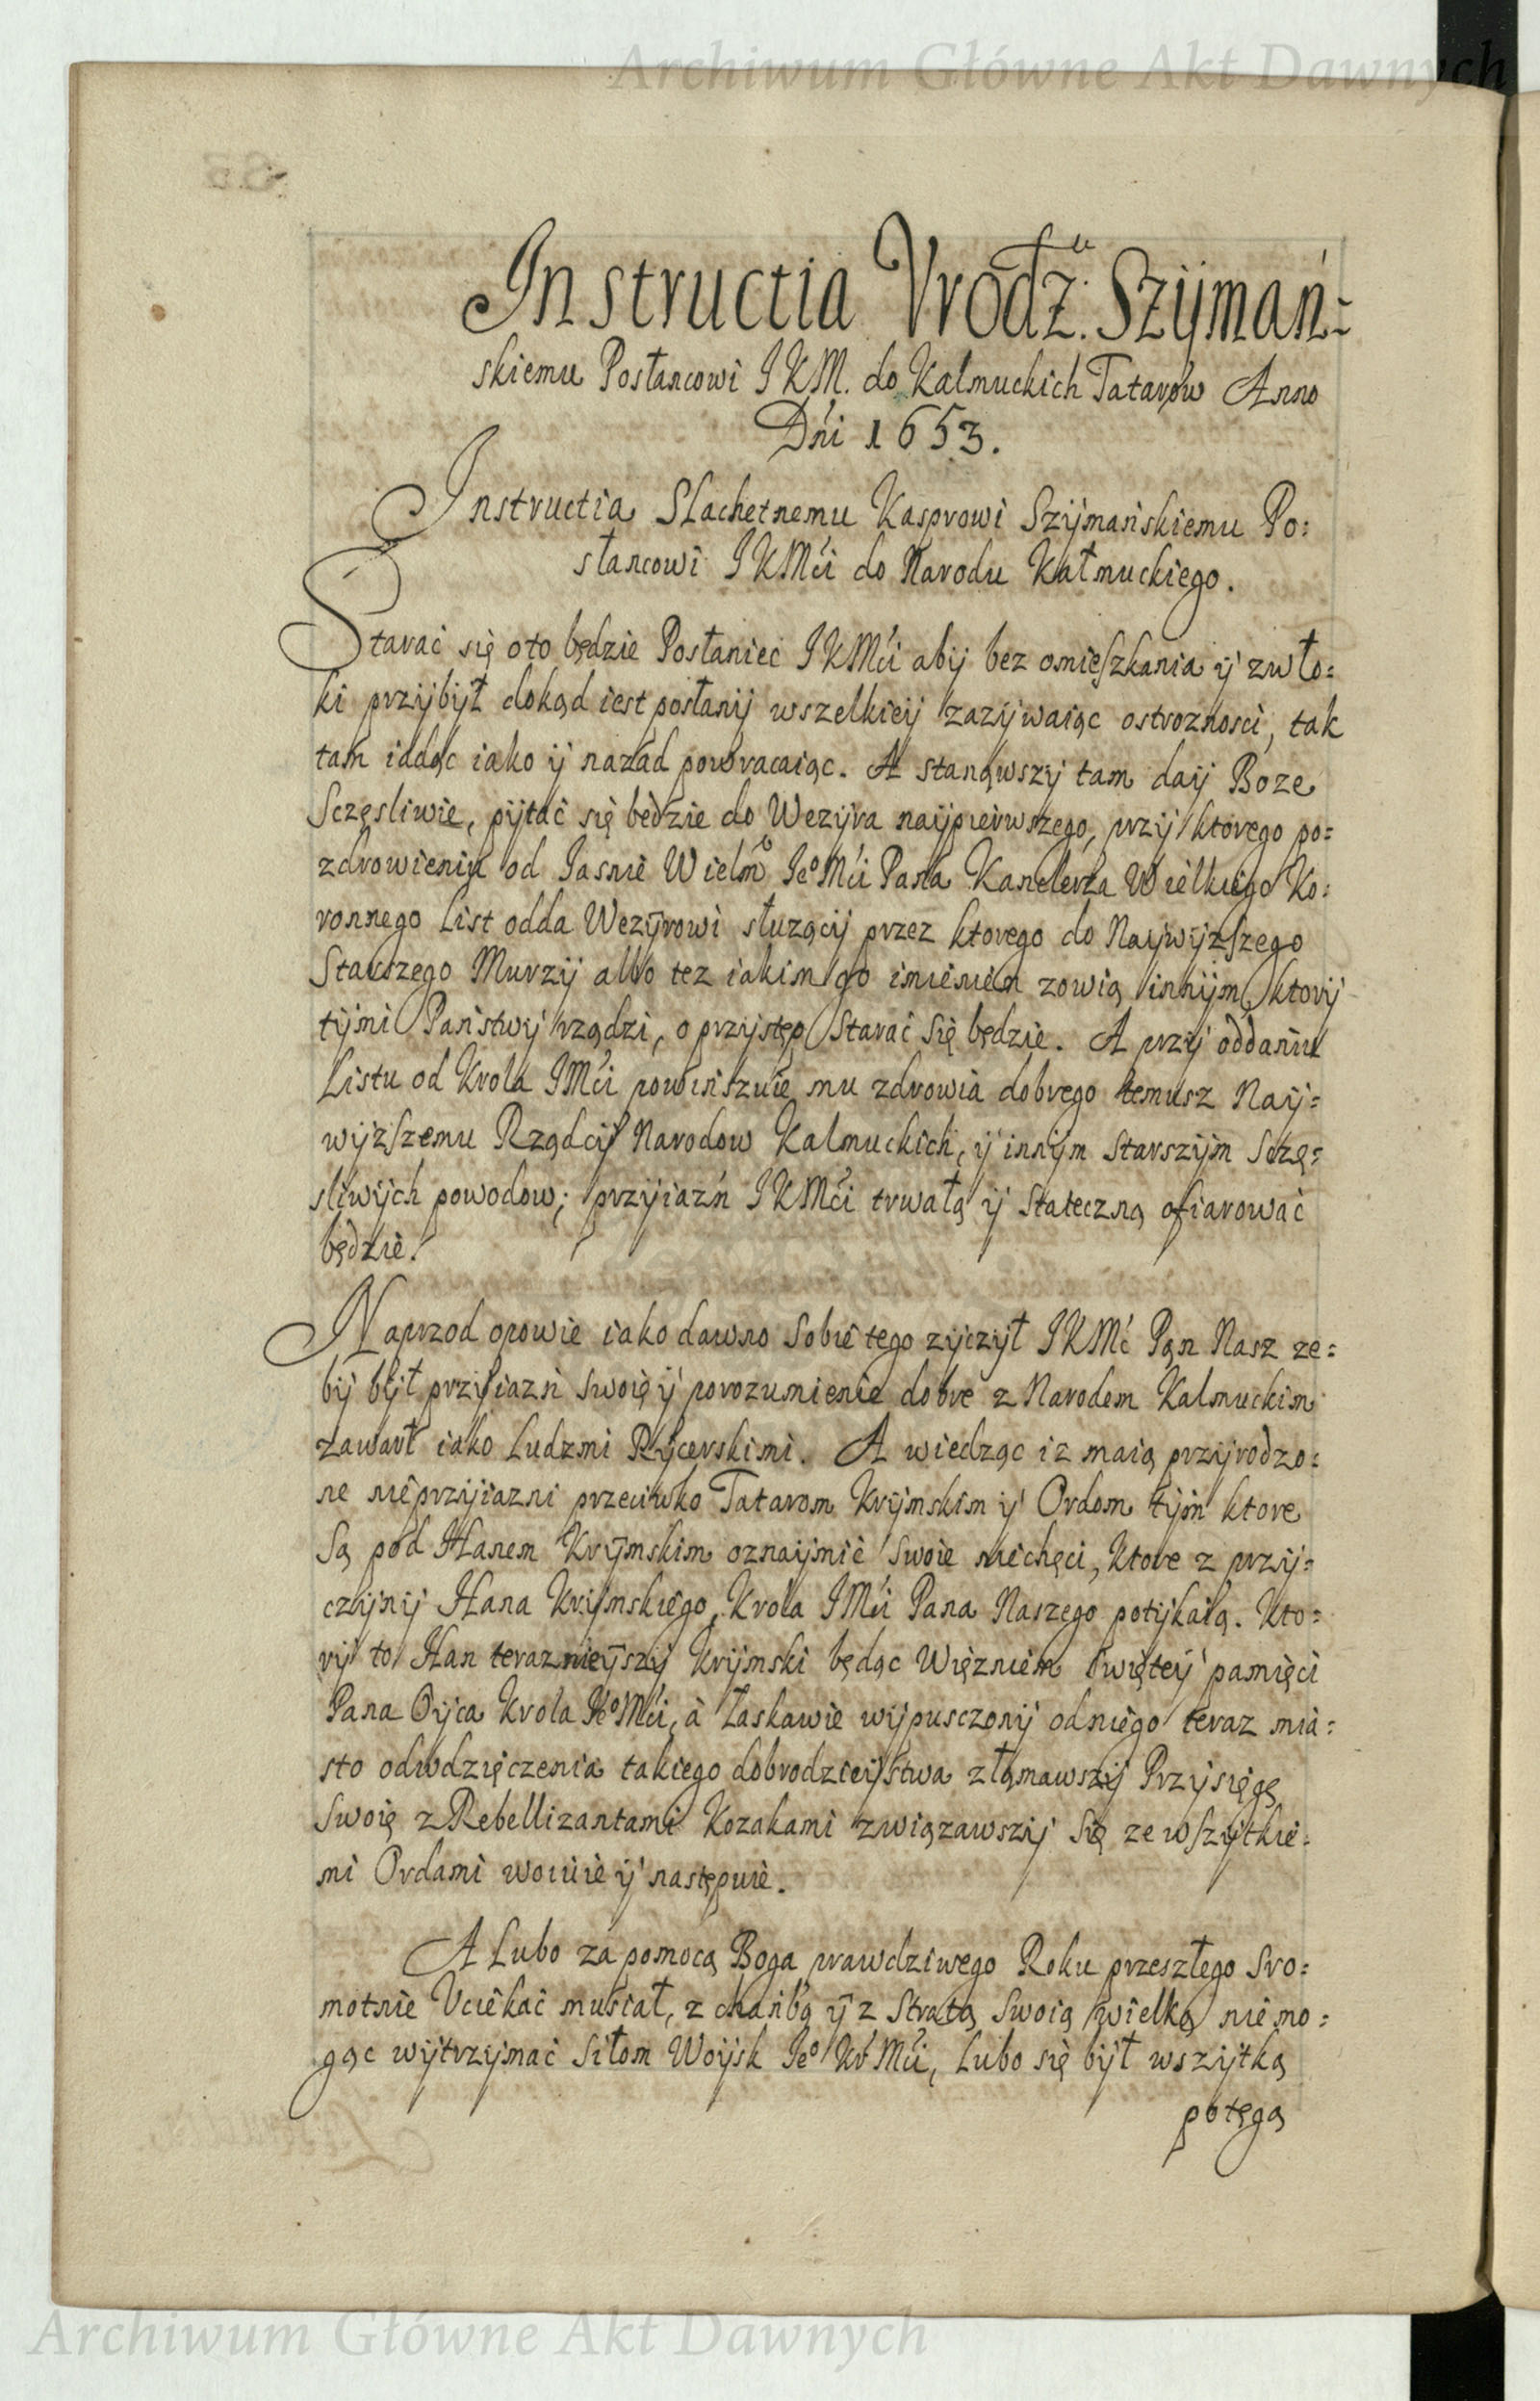 Archiwum Główne Akt Dawnych
Instructia Vrodz.u Szijmań=
skiemu Posłancowi I K M. do Kalmuckich Tatarow Anno
Dńi 1653.
Instructia Slachetnemu Kasprowi Szijmańskiemu Po=
słancowi I K Mći do Narodu Kałmuckiego.
Starać się oto będzie Posłaniec I K Mći abij bez omieszkania ij zwło=
ki przijbijł dokąd iest posłanij wszelkieij zazijwaiąc ostroznosci, tak
tam iddąc iako ij nazad powracaiąc. A stanąwszij tam daij Boze
Sczęsliwie, pijtać się będzie do Wezijra naijpierwszego, przij ktorego po=
zdrowieniu od Iasnie Wielmo Ieo Mći Pana Kanclerza Wielkiego Ko=
ronnego List odda Wezijrowi słuzącij przez ktorego do Naijwijzszego
Starszego Murzij albo tez iakim go imieniem zowią innijm, ktorij
tijmi Państwij rządzi, o przijstęp starać się będzie. A przij oddaniu
Listu od Krola I Mći powinszuie mu zdrowia dobrego temusz Naij=
wijzszemu Rządcij Narodow Kalmuckich, ij innijm starszijm Sczę=
sliwijch powodow; przijiazń I K Mći trwałą ij stateczną ofiarować
będzie.
Naprzod opowie iako dawno sobie tego zijczijł I K Mć Pan Nasz ze=
bij bijł przijiazń swoię ij porozumienie dobre z Narodem Kalmuckim
zawarł iako Ludzmi Rijcerskimi. A wiedząc iz maią przijrodzo=
ne nieprzijiazni przeciwko Tatarom Krijmskim ij Ordom tijm ktore
Są pod Hanem Krijmskim oznaijmić swoie niechęci, ktore z przij=
czijnij Hana Krijmskiego, Krola I Mći Pana Naszego potijkaią. Kto=
rij to Han teraznieijszij Krijmski będąc Więzniem swięteij pamięci
Pana Oijca Krola Ieo Mći, à łaskawie wijpusczonij od niego teraz mia=
sto odwdzięczenia takiego dobrodzieijstwa złamawszij Przijsięgę
Swoię z Rebellizantami Kozakami związawszij się ze wszijtkie=
mi Ordami woiuie ij następuie.
A Lubo za pomocą Boga prawdziwego Roku przeszłego sro=
motnie Vciekać musiał, z chańbą ij z stratą swoią wielką nie mo=
gąc wijtrzijmać siłom Woijsk Ieo Kr Mći, Lubo się bijł wszijtką
potęgą
Archiwum Główne Akt Dawnych